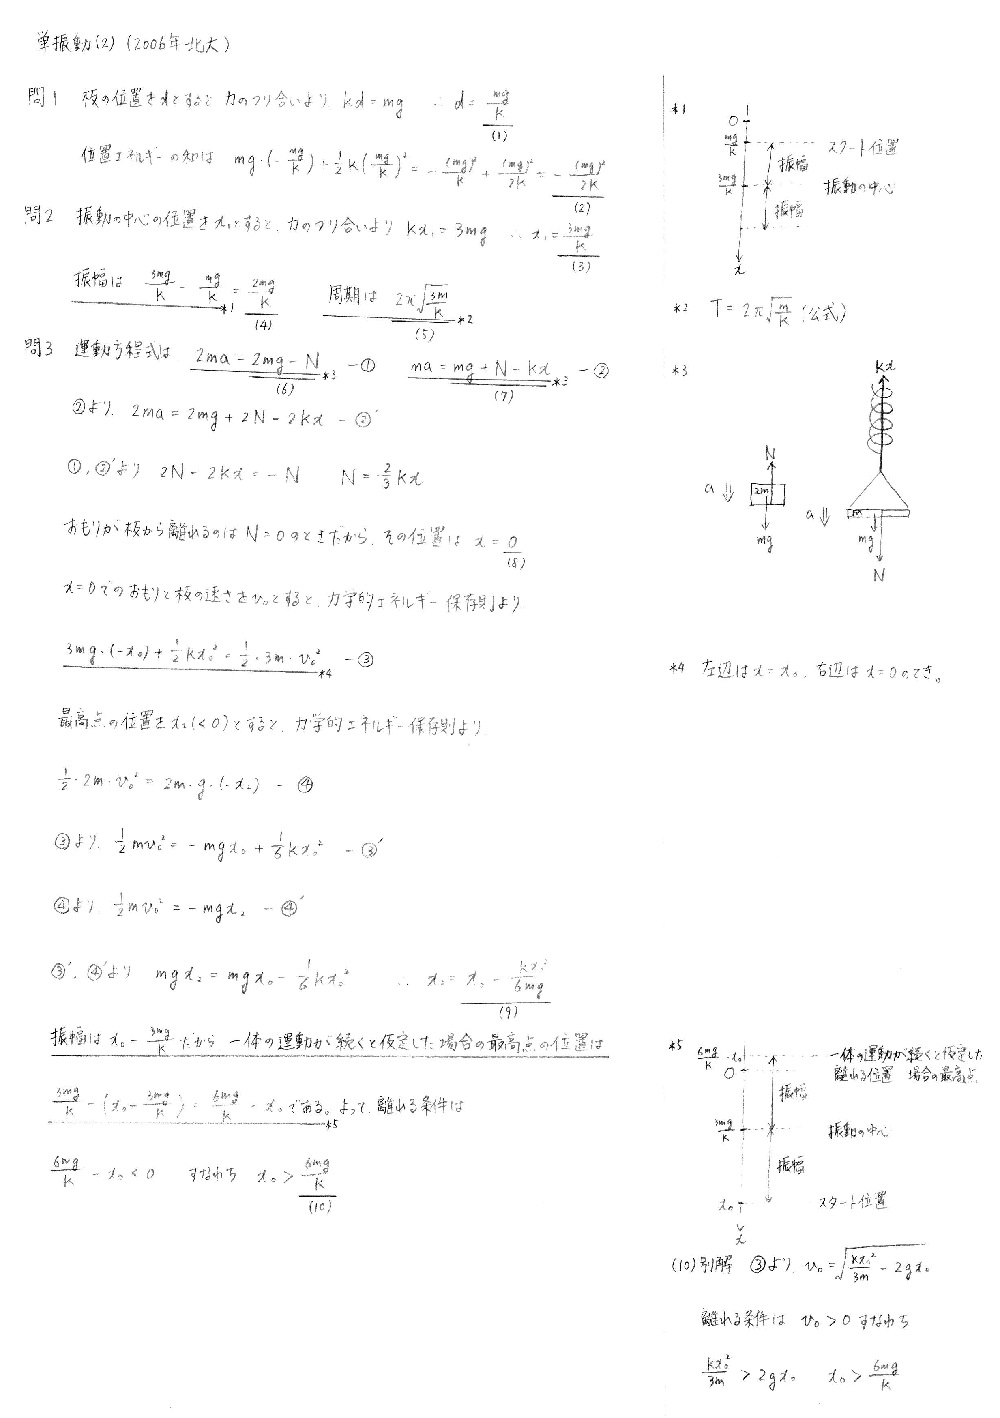 単振動(2) (2006年北大)
問1 板の位置をdとすると 力のつり合いより kd = mg ∴ d = mg/k (1)
位置エネルギーの和は mg・(-mg/k) + 1/2 k(mg/k)² = -(mg)²/k + (mg)²/2k = -(mg)²/2k (2)
問2 振動の中心の位置をx₁とすると、力のつり合いより kx₁ = 3mg ∴ x₁ = 3mg/k (3)
振幅は 3mg/k - mg/k *1 = 2mg/k (4) 周期は 2π√(3m/k) *2 (5)
問3 運動方程式は 2ma = 2mg - N *3 (6) - ① ma = mg + N - kx *3 (7) - ②
②より、2ma = 2mg + 2N - 2kx - ②'
①, ②'より 2N - 2kx = -N N = 2/3 kx
おもりが板から離れるのは N = 0 のときだから、その位置は x = 0 (8)
x = 0 でのおもりと板の速さをv₀とすると、力学的エネルギー保存則より
3mg・(-x₀) + 1/2 kx₀² = 1/2・3m・v₀² *4 - ③
最高点の位置をx₂(<0)とすると、力学的エネルギー保存則より
1/2・2m・v₀² = 2m・g・(-x₂) - ④
③より、1/2 mv₀² = -mgx₀ + 1/6 kx₀² - ③'
④より、1/2 mv₀² = -mgx₂ - ④'
③', ④'より mgx₂ = mgx₀ - 1/6 kx₀² ∴ x₂ = x₀ - kx₀²/6mg (9)
振幅は x₀ - 3mg/k だから 一体の運動が続くと仮定した場合の最高点の位置は
3mg/k - (x₀ - 3mg/k) = 6mg/k - x₀ である。*5 よって、離れる条件は
6mg/k - x₀ < 0 すなわち x₀ > 6mg/k (10)
*1
0
mg/k スタート位置
振幅
3mg/k 振動の中心
振幅
x
*2 T = 2π√(m/k) (公式)
*3
kx
N
a 2m
a m
mg mg
N
*4 左辺はx = x₀、右辺はx = 0のとき。
*5 6mg/k - x₀ 一体の運動が続くと仮定した
0 離れる位置 場合の最高点
振幅
3mg/k 振動の中心
振幅
x₀ スタート位置
x
(10)別解 ③より、v₀ = √(kx₀²/3m - 2gx₀)
離れる条件は v₀ > 0 すなわち
kx₀²/3m > 2gx₀ x₀ > 6mg/k